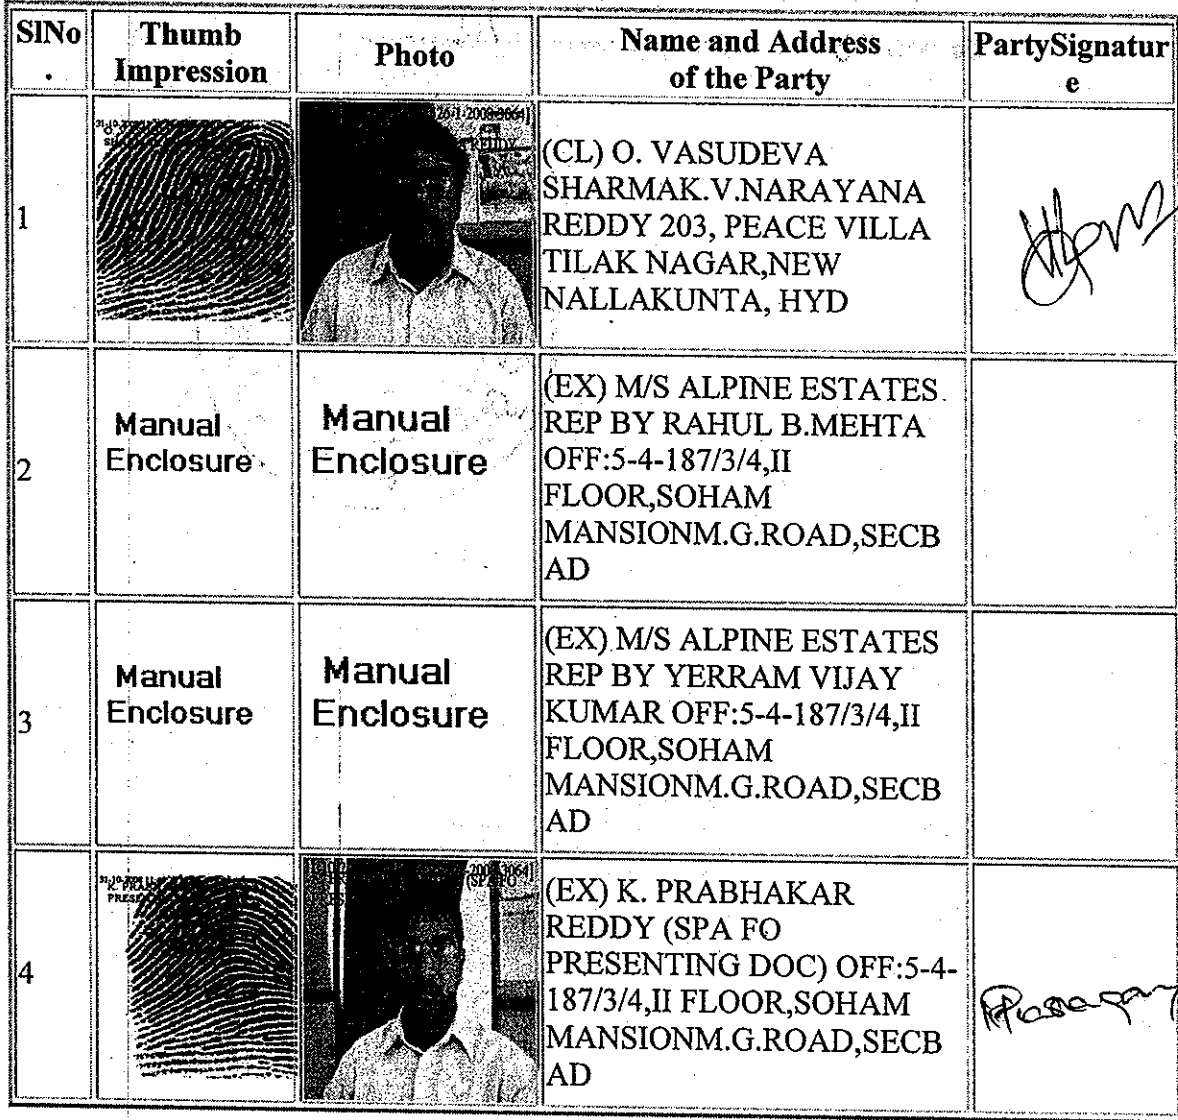 SlNo
.
Thumb
Impression
Photo
Name and Address
of the Party
PartySignatur
e
1
(CL) O. VASUDEVA
SHARMAK.V.NARAYANA
REDDY 203, PEACE VILLA
TILAK NAGAR,NEW
NALLAKUNTA, HYD
2
Manual
Enclosure
Manual
Enclosure
(EX) M/S ALPINE ESTATES
REP BY RAHUL B.MEHTA
OFF:5-4-187/3/4,II
FLOOR,SOHAM
MANSIONM.G.ROAD,SECB
AD
3
Manual
Enclosure
Manual
Enclosure
(EX) M/S ALPINE ESTATES
REP BY YERRAM VIJAY
KUMAR OFF:5-4-187/3/4,II
FLOOR,SOHAM
MANSIONM.G.ROAD,SECB
AD
4
(EX) K. PRABHAKAR
REDDY (SPA FO
PRESENTING DOC) OFF:5-4-
187/3/4,II FLOOR,SOHAM
MANSIONM.G.ROAD,SECB
AD